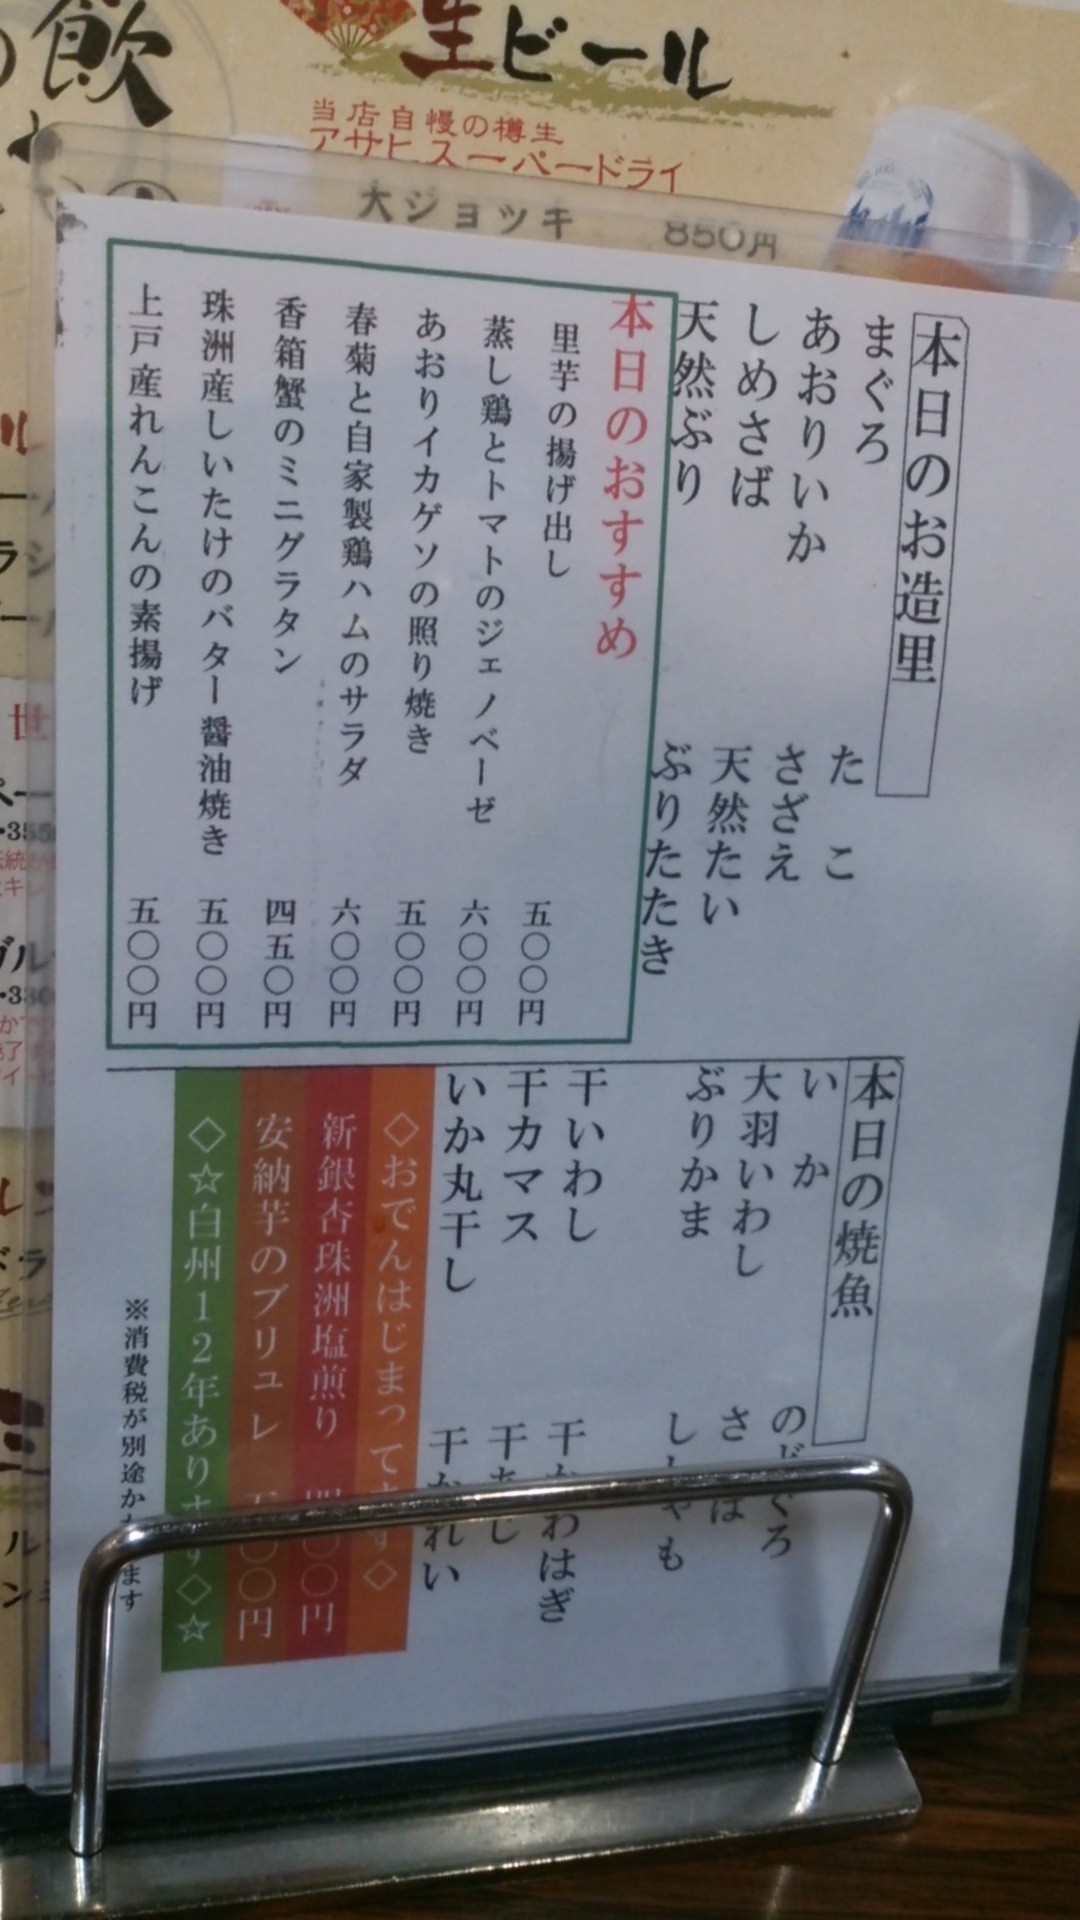 生ビール
当店自慢の樽生
アサヒスーパードライ
大ジョッキ 850円
飲
本日のお造里
まぐろ
たこ
あおりいか
さざえ
しめさば
天然たい
天然ぶり
ぶりたたき
本日のおすすめ
里芋の揚げ出し 五〇〇円
蒸し鶏とトマトのジェノベーゼ 六〇〇円
あおりイカゲソの照り焼き 五〇〇円
春菊と自家製鶏ハムのサラダ 六〇〇円
香箱蟹のミニグラタン 四五〇円
珠洲産しいたけのバター醤油焼き 五〇〇円
上戸産れんこんの素揚げ 五〇〇円
本日の焼魚
いか
のどぐろ
大羽いわし
さば
ぶりかま
ししゃも
干いわし
干かわはぎ
干カマス
干あじ
いか丸干し
干かれい
◇おでんはじまってます◇
新銀杏珠洲塩煎り 〇〇円
安納芋のブリュレ 〇〇円
◇☆白州12年あります◇☆
※消費税が別途かかります